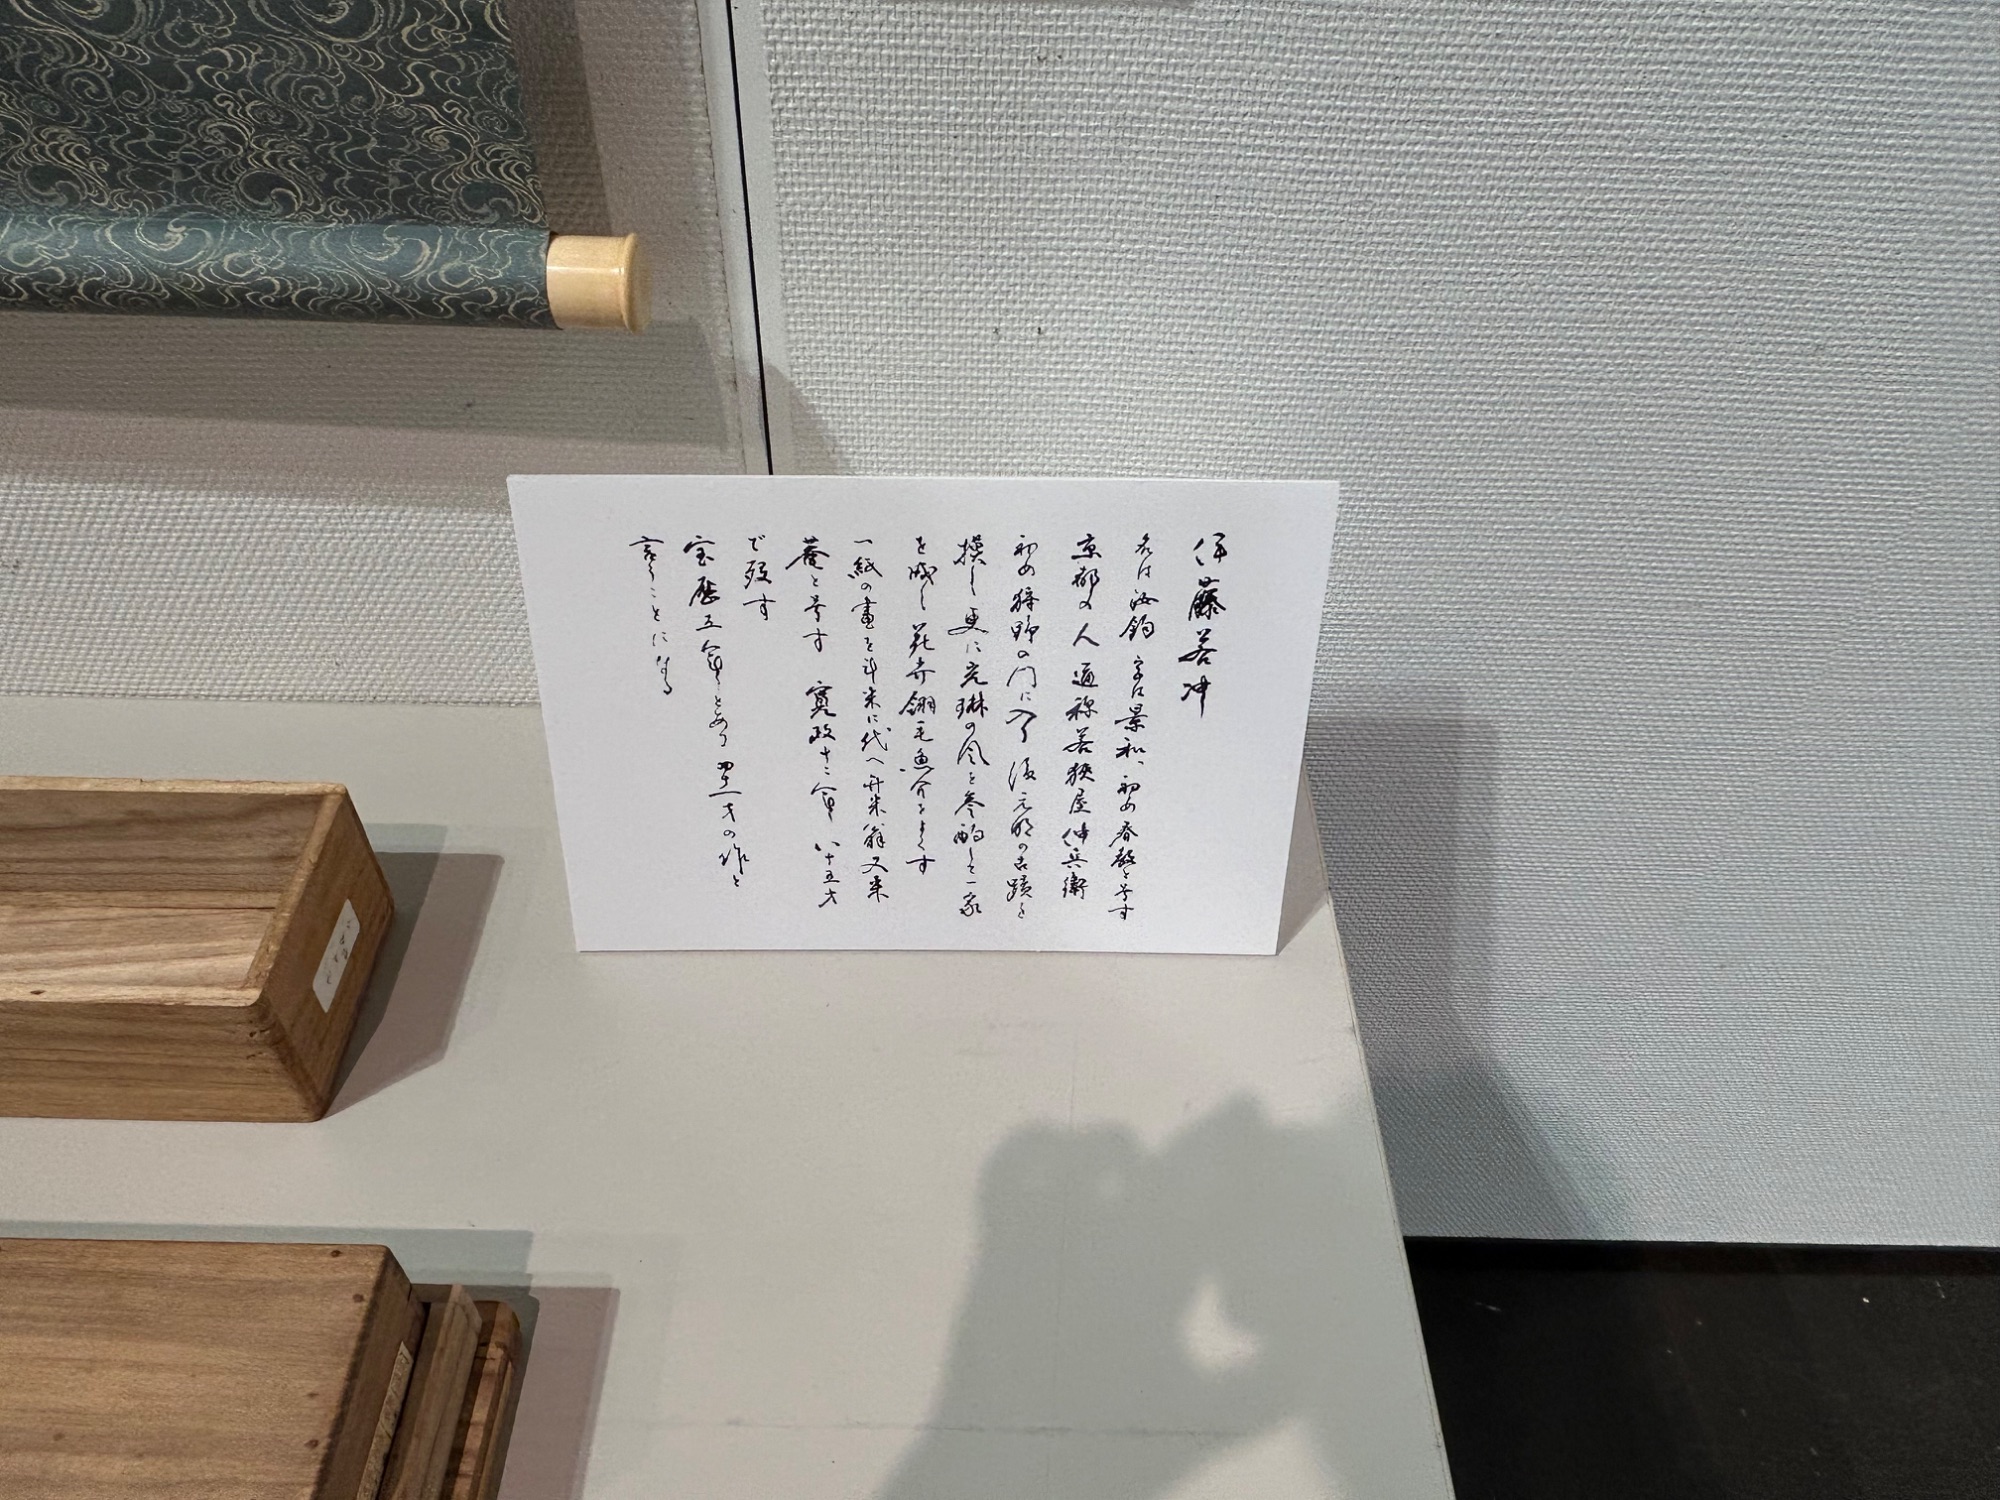 伊藤若冲
名は汝鈞 字は景和、初め春教と号す
京都の人 通称若狭屋仲兵衛
初め狩野の門に入り 後元明の古蹟を
摸し 更に光琳の風を参酌して一家
を成し 花卉翎毛魚介をよくす
一紙の畫を斗米に代へ斗米翁又米
菴と号す 寛政十二年 八十五才
で歿す
宝歴五年とあり 四十一才の作と
言うことになる